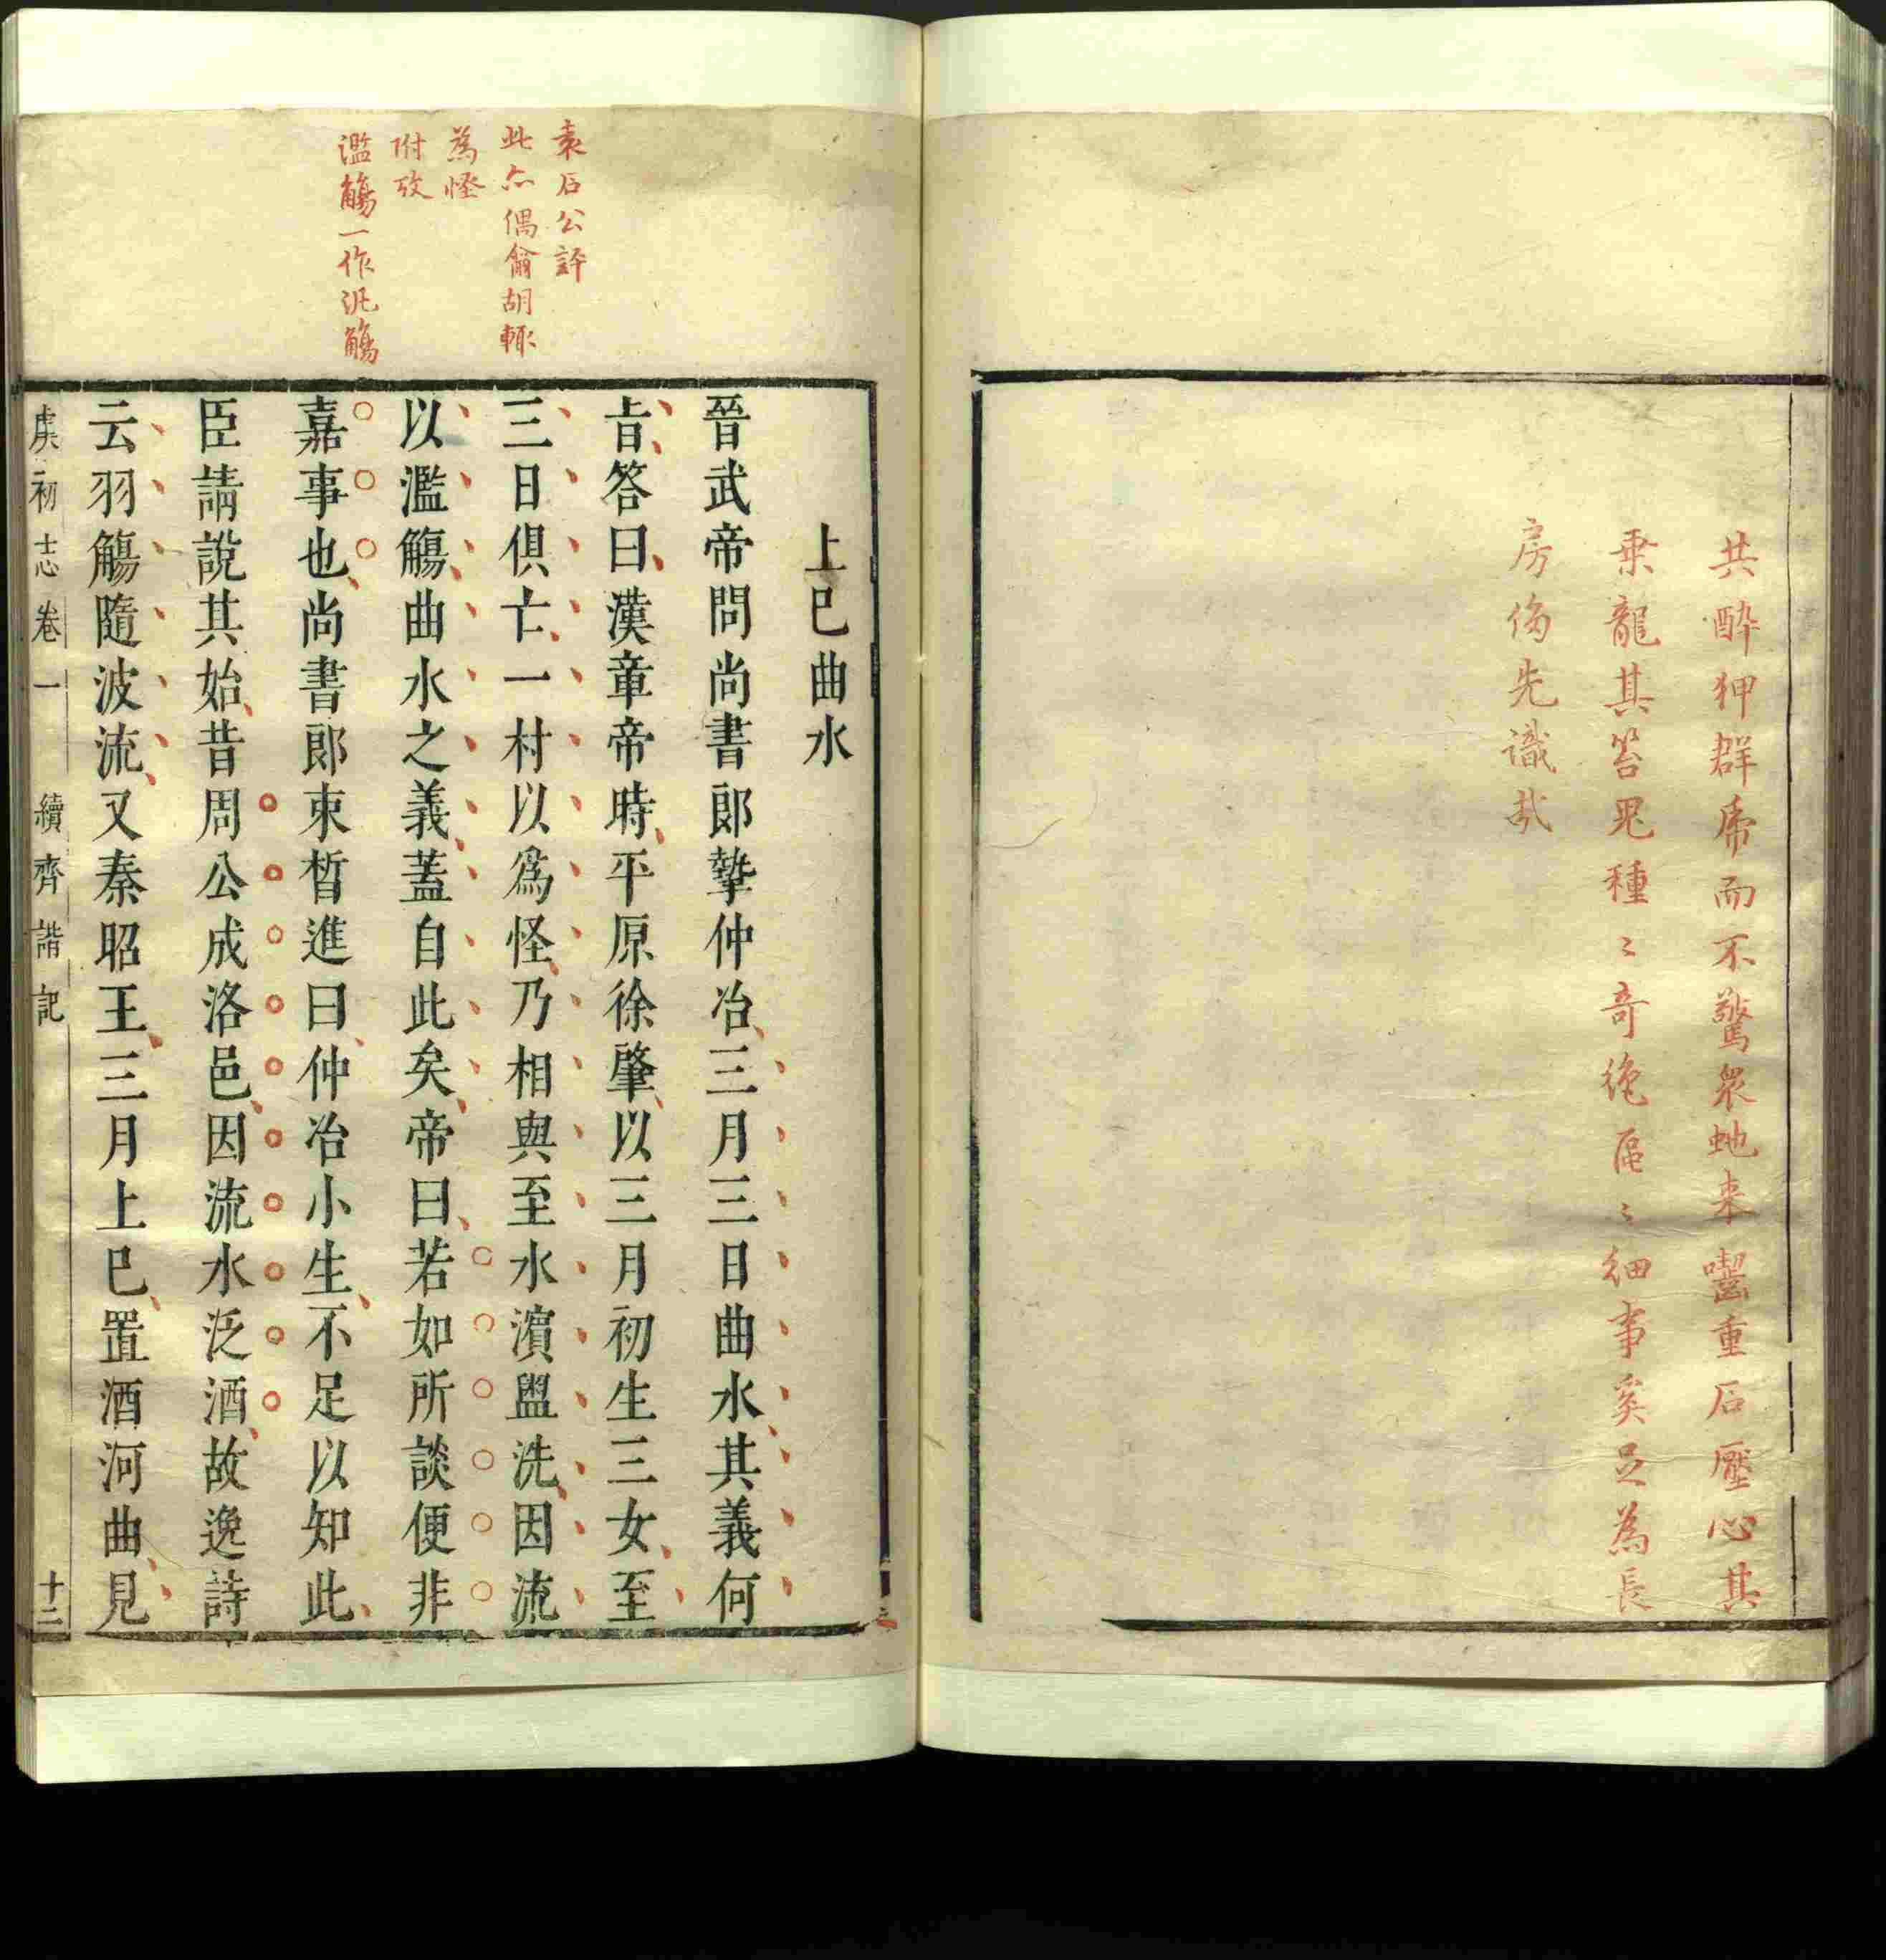 共醉狎群乕而不驚衆虵来囓重石壓心其
乗龍其笞鬼種〻奇絶區〻細事奚足為長
房侈先識哉
袁石公評
此亦偶爾胡輒
為怪
附攷
濫觴一作汎觴
上巳曲水
晉武帝問尚書郎摯仲冶三月三日曲水其義何
㫖答曰漢章帝時平原徐肇以三月初生三女至
三日俱亡一村以爲怪乃相與至水濱盥洗因流
以濫觴曲水之義蓋自此矣帝曰若如所談便非
嘉事也尚書郎束晳進曰仲冶小生不足以知此
臣請說其始昔周公成洛邑因流水泛酒故逸詩
云羽觴隨波流又秦昭王三月上巳置酒河曲見
虞初志 卷一 續齊諧記 十二